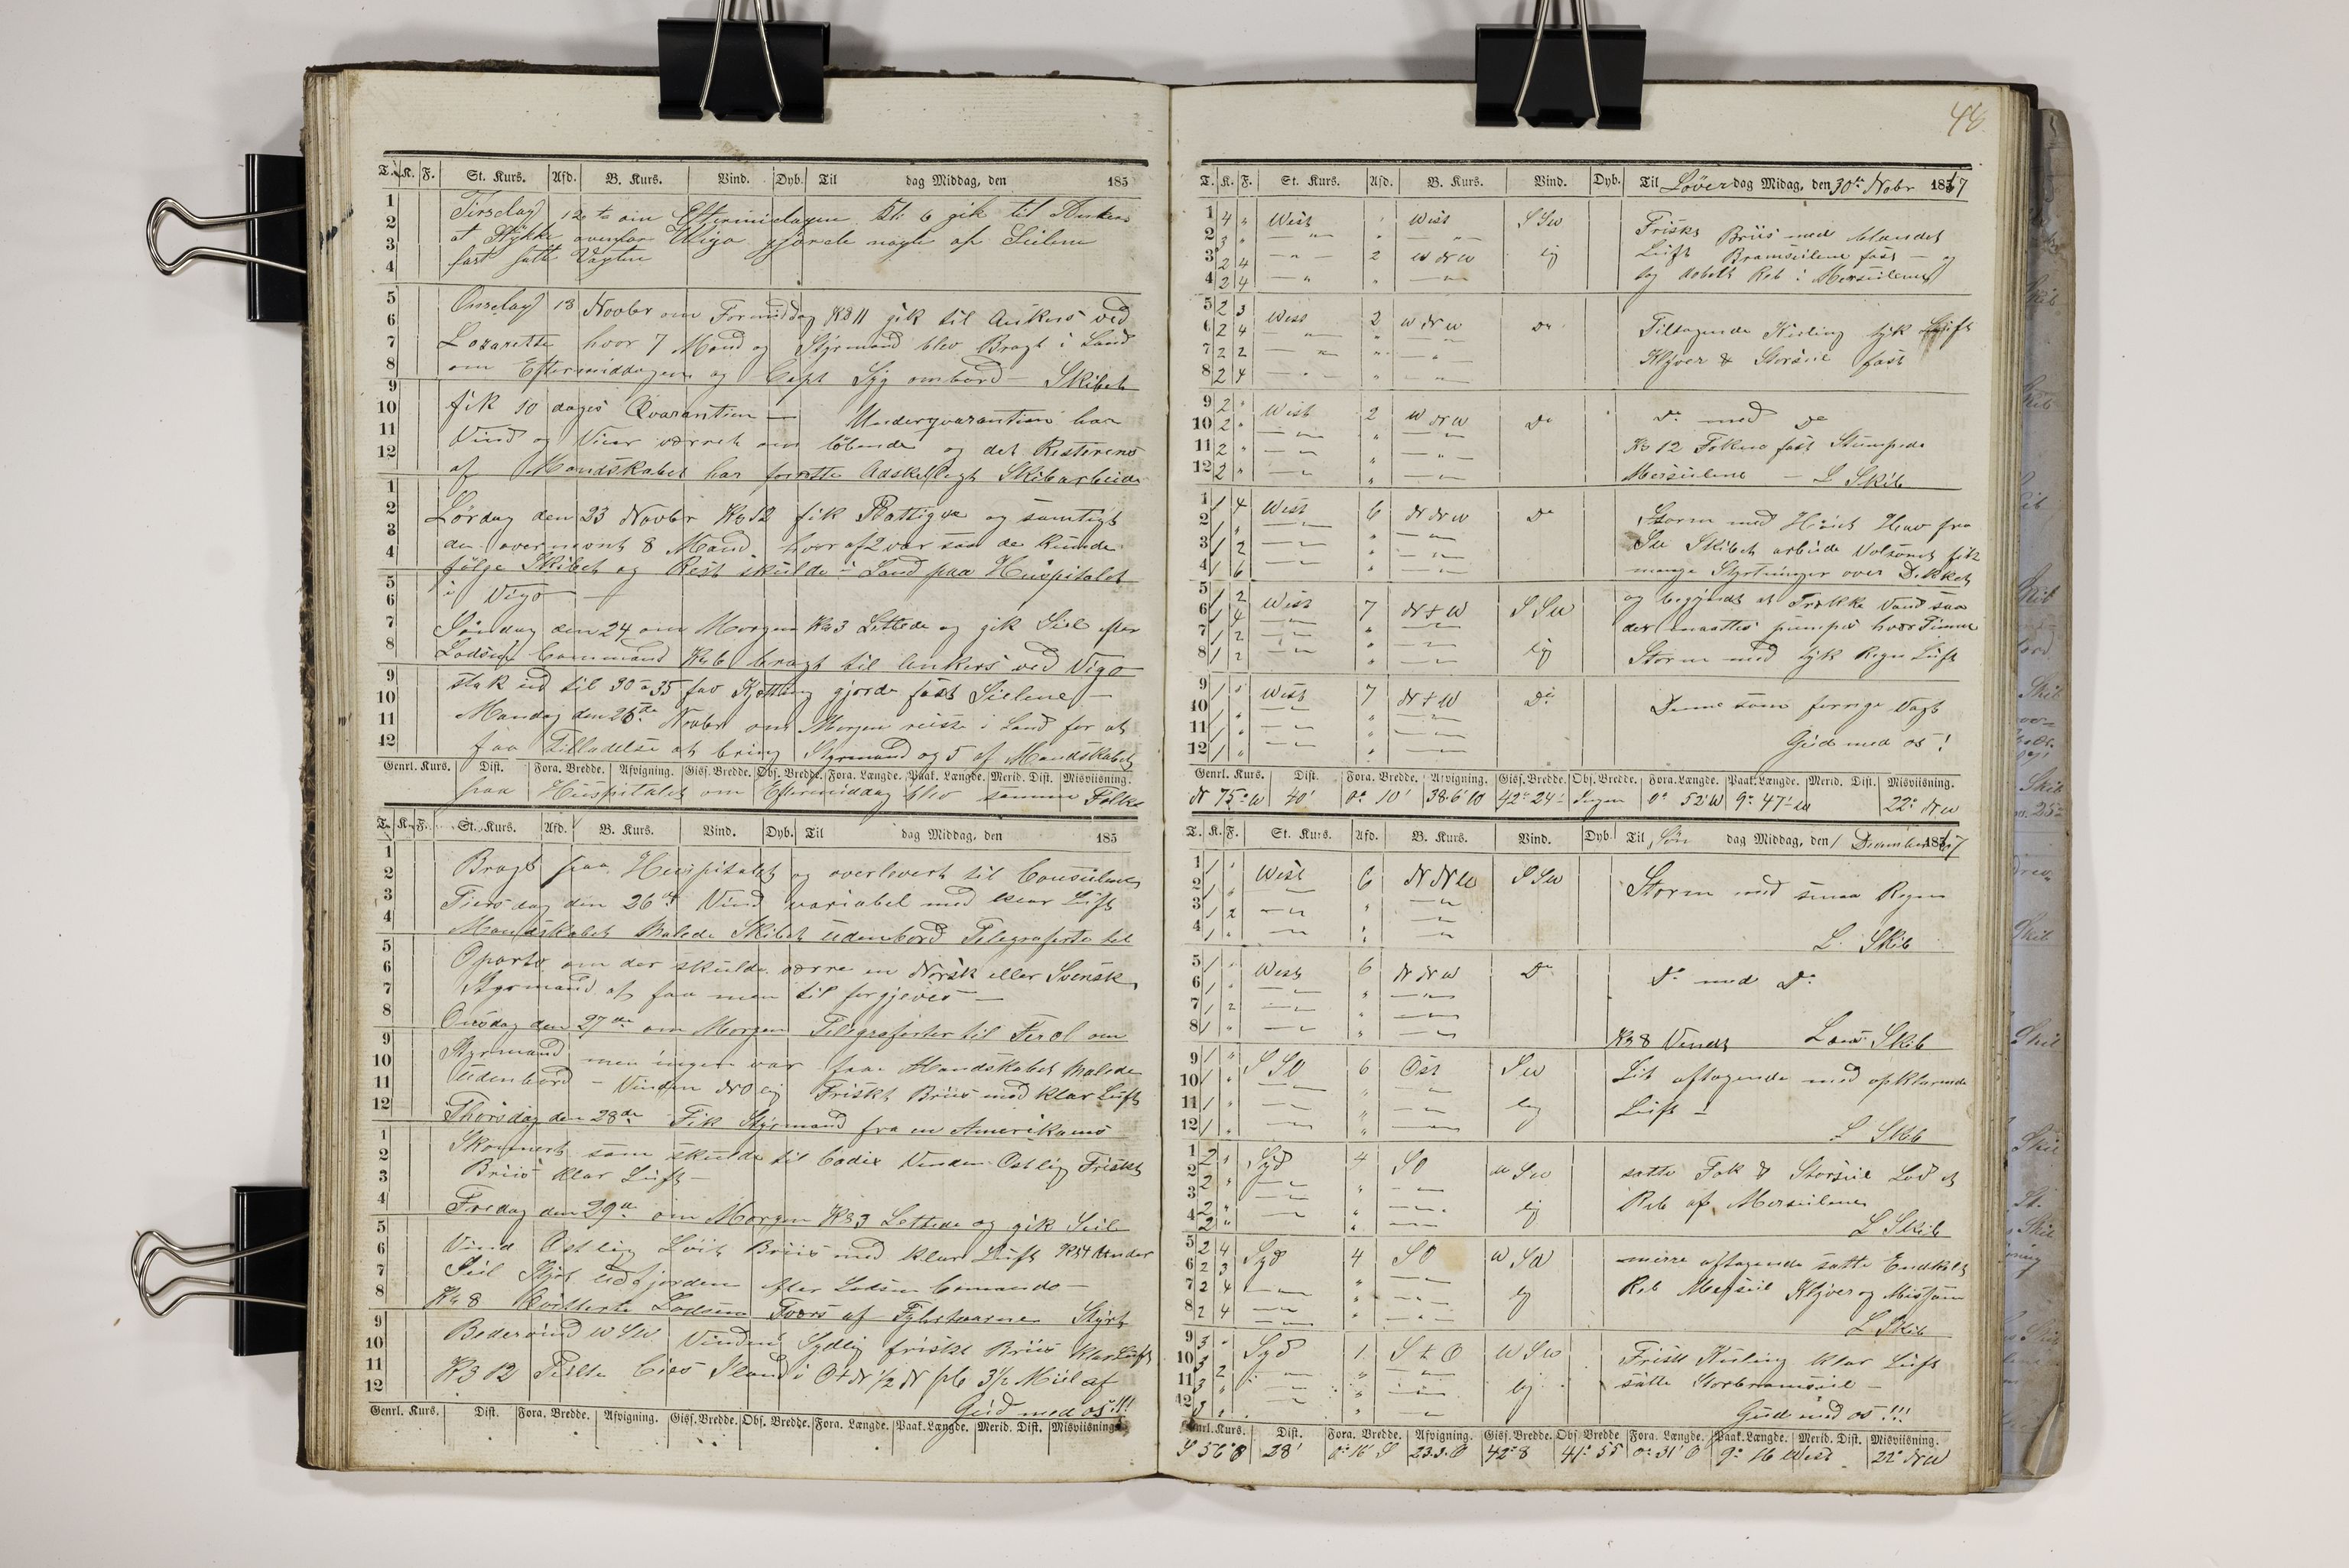 T. K. F. St. Kurs. Afd. B. Kurs. Vind. Dyb. Til dag Middag, den 185
Tirsdag 12te om Eftermidagen Kl: 6 gik til Ankers
et Stykke ovenfor Wigo gjorde nogle af Seilene
fast satte Vagten
Onsdag 13 Novbr om Formiddag Kl 11 gik til Ankers ved
Lazarette hvor 7 Mand og Styrmand blev Bragt i Land
om Eftermiddagen og Capt Syg ombord – Skibet
fik 10 dages Qvarantien — Underqvarantien har
Vind og Veir værret om løbende og det Resterens
af Mandskabet har forrette Adskelligt Skibarbeide
Lørdag den 23 Novbr Kl 12 fik Prattigue og samtigt
de overnevnt 8 Mand hvor af 2 var saa de kunde
følge Skibet og Rest skulde i Land paa Huspitalet
i Vigo —
Søndag den 24 om Morgen Kl 3 Lettede og gik Seil efter
Lodsens Command Kl 6 bragt til Ankers ved Vigo
stak ud til 30 a 35 fav Kjetting gjorde fast Seilene –
Mandag den 25de Novbr om Morgen reiste i Land for at
faa Tilladelse at bring Styrmand og 5 af Mandskabet
Genrl. Kurs. Dist. Fora. Bredde. Afvigning. Gisf. Bredde. Obs. Bredde. Fora. Længde. Paak. Længde. Merid. Dist. Misviisning.
paa Huspitalet om Eftermiddag blev samme Folke
T. K. F. St. Kurs. Afd. B. Kurs. Vind. Dyb. Til dag Middag, den 185
Bragt paa Huspitalet og overlevert til Consulen
Tiersdag den 26de Vind variabel med klar Luft
Mandskabet Malede Skibet udenbord Telegraferte til
Oporto om der skulde værre en Norsk eller Svensk
Styrmand at faa men til forgjeves —
Onsdag den 27de om Morgen Telegraferter til Ferol om
Styrmand men ingen var faa Mandskabet Malede
udenbord – Vinden NO lig Friskt Briis med klar Luft
Thorsdag den 28de Fik Styrmand fra en Amerikansk
Skonnert som skulde til Cadix Vinden Ostlig Friskt
Briis klar Luft –
Fredag den 29de om Morgen Kl 3 Lettede og gik Seil
Vind Ostlig Løit Briis med klar Luft Kl 4 Under
Seil Styrt udfjorden efter Lodsen Comando –
Kl 8 Qvitterte Lodsen Tvers af Styrt
Bedevind WSW. Vinden Sydlig friskt Briis klar Luft
Kl 12 Peilte Cies Iland i O t N 1/2 N p/c 3 1/2 Miil af
Gud med os!!!
Genrl. Kurs. Dist. Fora. Bredde. Afvigning. Gisf. Bredde. Obs. Bredde. Fora. Længde. Paak. Længde. Merid. Dist. Misviisning.
48
T. K. F. St. Kurs. Afd. B. Kurs. Vind. Dyb. Til Löverdag Midag, den 30te Nobr 1867
1 4 " West " West SSW Friskt Briis med blandet
2 3 " — " — Luft Bramseilene fast – og
3 2 4 — " — 2 WNW lig tog dobelt Reb i Merseilene
4 2 4 — " —
5 2 3 West 2 WNW Do Tiltagende Kuling tyk Luft
6 2 4 — " — Klyver & Storseil fast
7 2 2 — " —
8 2 4 — " —
9 2 " West 2 WNW Do Do med Do
10 2 " — " — Kl 12 Fokken fast Stumpede
11 2 " — " — Merseilene – L Skib
12 2 " — " —
1 1 4 West 6 NNW Do Storm med Høiet Hav fra
2 1 " — " — SW Skibet arbeide Volsomt fikk
3 1 2 — " — mange Styrtninger over Dekket
4 1 6 — " —
5 1 2 West 7 N t W SSW og begyndt at Trække Vand saa
6 1 4 — " — der maattes pumpes hver Time
7 1 2 — " — lig Storm med tyk Regn Luft
8 1 2 — " —
9 1 " West 7 N t W Do Denne som forrige Vagt
10 1 " — " —
11 1 " — " — Gud med os!
12 1 " — " —
Genrl. Kurs. Dist. Fora. Bredde. Afvigning. Gisf. Bredde. Obs. Bredde. Fora. Længde. Paak. Længde. Merid. Dist. Misviisning.
N 75° W 40' 0° 10' 38.6' W 42° 24' Ingen 0° 52' W 9° 47' W 22° NW
T. K. F. St. Kurs. Afd. B. Kurs. Vind. Dyb. Til Søn dag Middag, den 1 December 1867
1 1 " West 6 NNW SSW Storm med smaa Regn
2 1 " — " —
3 1 2 — " —
4 1 " — " — L. Skib
5 1 " West 6 NNW Do Do med Do
6 1 " — " —
7 1 2 — " —
8 1 " — " — Kl 8 Vendt Lens Skib
9 1 " SSO 6 Ost SW Lit aftagende med opklarende
10 1 " — " —
11 1 " — " — lig Luft –
12 1 " — " — L Skib
1 2 " Syd 4 SO WSW satte Fok & Storseil Lod et
2 2 " — " — Reb af Merseilene
3 2 " — " — lig
4 2 " — " — L Skib
5 2 4 Syd 4 SO WSW mere aftagende satte Enckelt
6 2 3 — " — Reb Merseil Klyver og Missan
7 2 4 — " — lig
8 2 4 — " — L Skib
9 3 " Syd 1 S t O WSW Friskt Kuling klar Luft
10 3 2 — " — satte Storbramseil –
11 3 " — " — lig
12 3 " — " — Gud med os!!!
Genrl. Kurs. Dist. Fora. Bredde. Afvigning. Gisf. Bredde. Obs. Bredde Fora. Længde. Paak. Længde. Merid. Dist. Misviisning.
S 56° O 28' 0° 16' S 23.3. O 42° 8 41° 55 0° 31' O 9° 16 West 22° NW